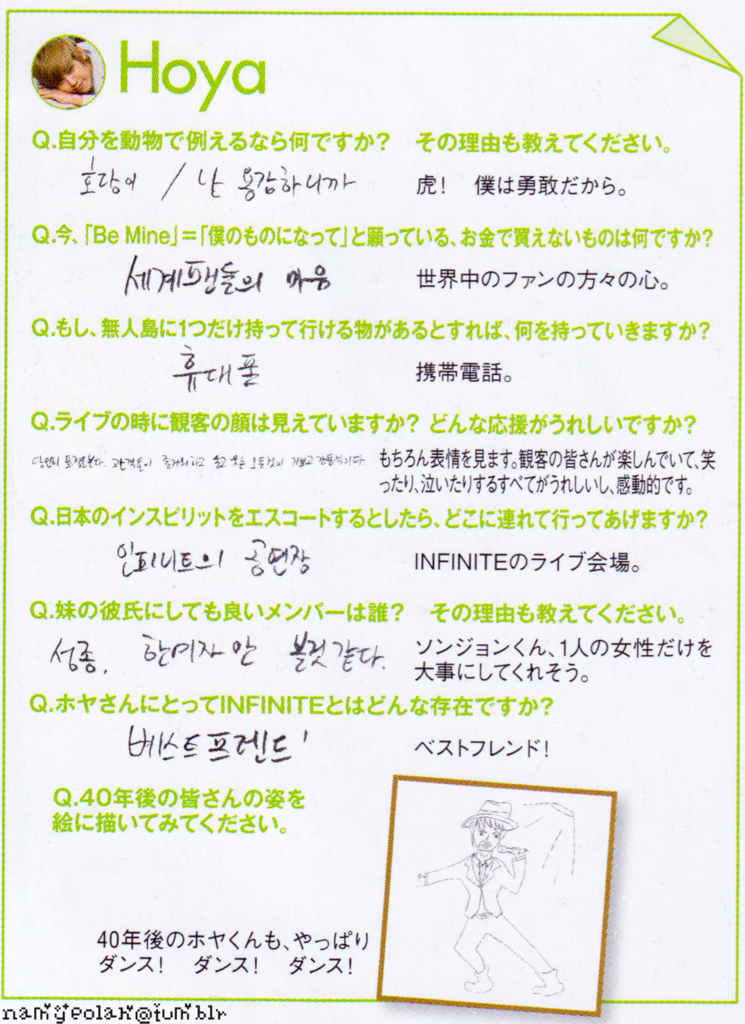 Hoya
Q.自分を動物で例えるなら何ですか? その理由も教えてください。
호랑이 / 난 용감하니까
虎! 僕は勇敢だから。
Q.今、「Be Mine」=「僕のものになって」と願っている、お金で買えないものは何ですか?
세계팬들의 마음
世界中のファンの方々の心。
Q.もし、無人島に1つだけ持って行ける物があるとすれば、何を持っていきますか?
휴대폰
携帯電話。
Q.ライブの時に観客の顔は見えていますか? どんな応援がうれしいですか?
もちろん表情を見ます。観客の皆さんが楽しんでいて、笑
ったり、泣いたりするすべてがうれしいし、感動的です。
Q.日本のインスピリットをエスコートするとしたら、どこに連れて行ってあげますか?
인피니트의 공연장
INFINITEのライブ会場。
Q.妹の彼氏にしても良いメンバーは誰? その理由も教えてください。
성종. 한여자만 볼것 같다.
ソンジョンくん、1人の女性だけを
大事にしてくれそう。
Q.ホヤさんにとってINFINITEとはどんな存在ですか?
베스트프렌드!
ベストフレンド!
Q.40年後の皆さんの姿を
絵に描いてみてください。
40年後のホヤくんも、やっぱり
ダンス! ダンス! ダンス!
namyeolak@tumblr